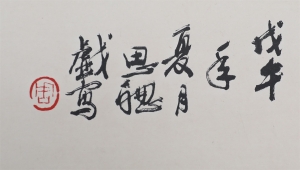 戊午
年
夏月
思聰
戲寫